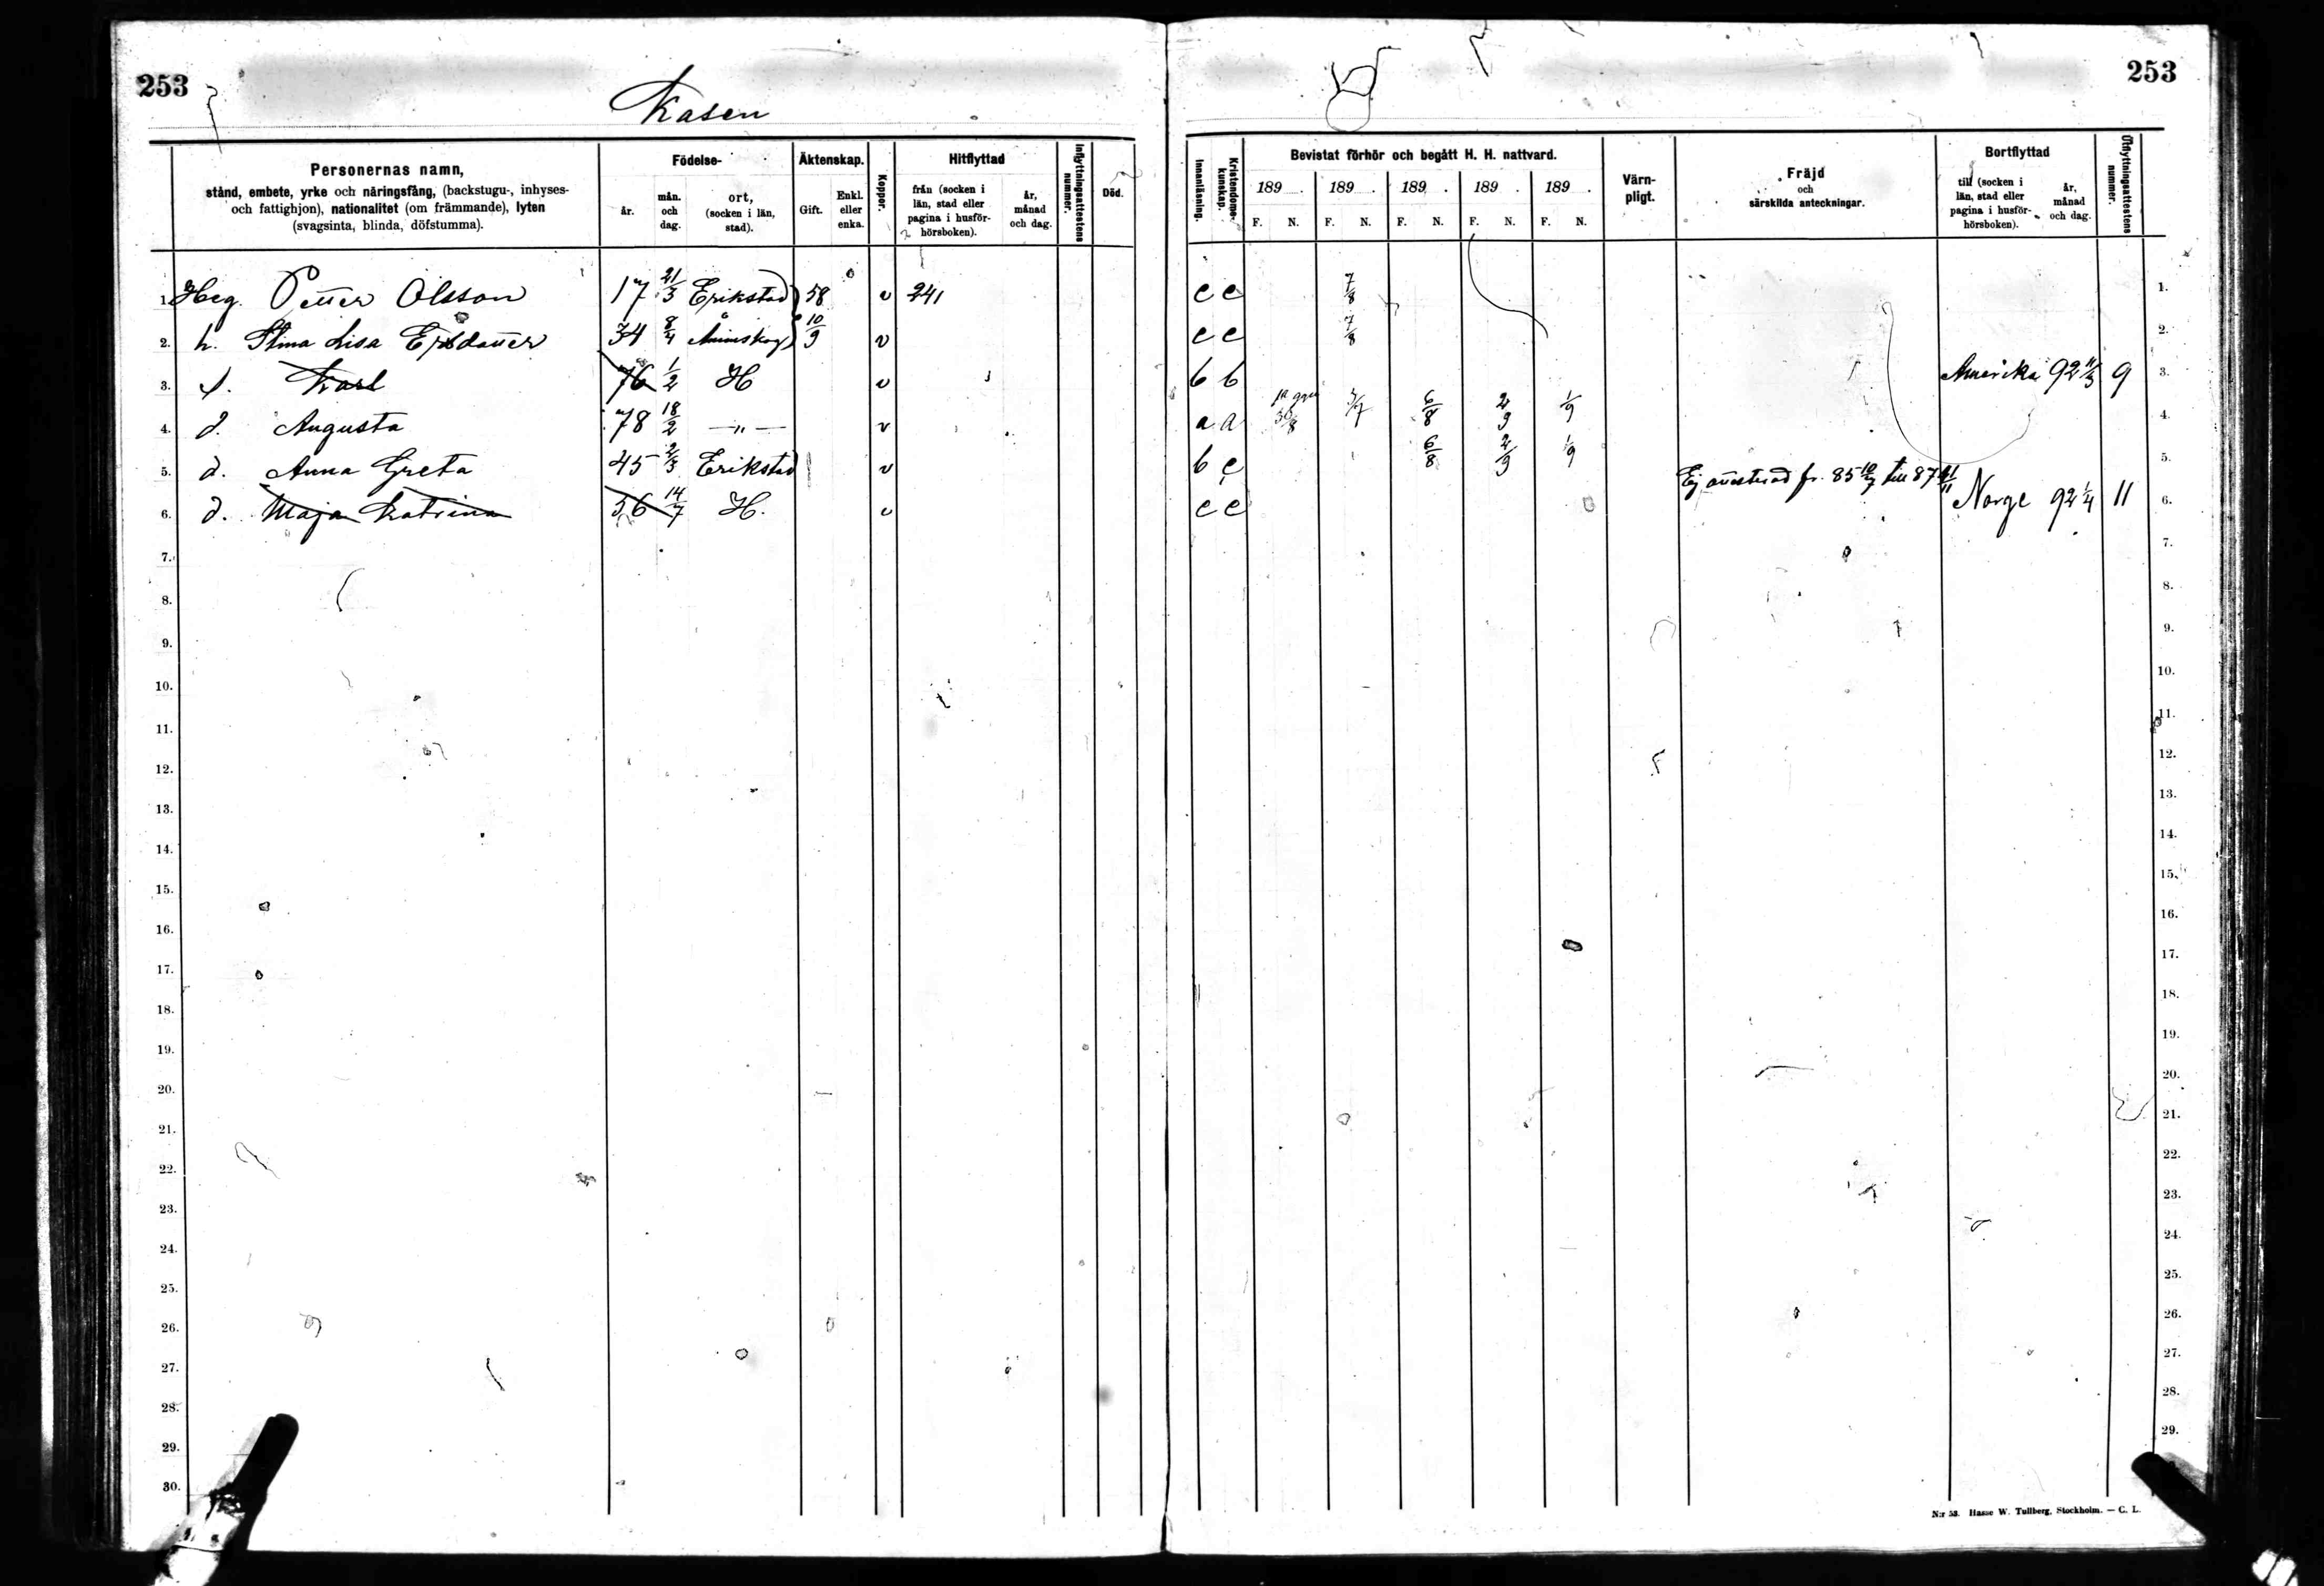 253
Kasen
253
Personernas namn,
stånd, embete, yrke och näringsfång, (backstugu-, inhyses-
och fattighjon), nationalitet (om främmande), lyten
(svagsinta, blinda, döfstumma).
Födelse-
år.
mån.
och
dag.
ort,
(socken i län,
stad).
Äktenskap.
Gift.
Enkl.
eller
enka.
Koppor.
Hitflyttad
från (socken i
län, stad eller
pagina i husför-
hörsboken).
år,
månad
och dag.
Inflyttningsattestens
nummer.
Död.
Innanläsning.
Kristendoms-
kunskap.
Bevistat förhör och begått H. H. nattvard.
189 . 189 . 189 . 189 . 189 .
F. N. F. N. F. N. F. N. F. N.
Värn-
pligt.
Fräjd
och
särskilda anteckningar.
Bortflyttad
till (socken i
län, stad eller
pagina i husför-
hörsboken).
år,
månad
och dag.
Utflyttningsattestens
nummer.
1. Heg. Petter Olsson 17 21/3 Erikstad 58 v 241 c c 7/8 1.
2. h. Stina Lisa 34 8/4 Ånimskog 10/9 v c c 7/8 2.
3. s. Karl 76 1/2 H v b b Amerika 92 11/3 9 3.
4. d. Augusta 78 18/2 —"— v a a 5/7 6/8 2/9 1/9 4.
5. d. Anna Greta 45 2/3 Erikstad v b c 6/8 2/9 1/9 5.
6. d. Maja Katrina 56 14/7 H. v c c Ej attesterad fr. 85 till 87 Norge 92 1/4 11 6.
7. 7.
8. 8.
9. 9.
10. 10.
11. 11.
12. 12.
13. 13.
14. 14.
15. 15.
16. 16.
17. 17.
18. 18.
19. 19.
20. 20.
21. 21.
22. 22.
23. 23.
24. 24.
25. 25.
26. 26.
27. 27.
28. 28.
29. 29.
30.
N:r 53. Hasse W. Tullberg, Stockholm. — C. L.